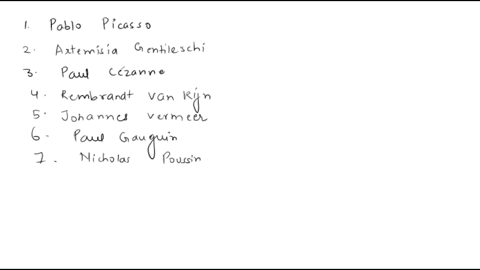 1. Pablo Picasso
2. Artemisia Gentileschi
3. Paul Cézanne
4. Rembrandt van Rijn
5. Johannes vermeer
6. Paul Gauguin
7. Nicholas Poussin